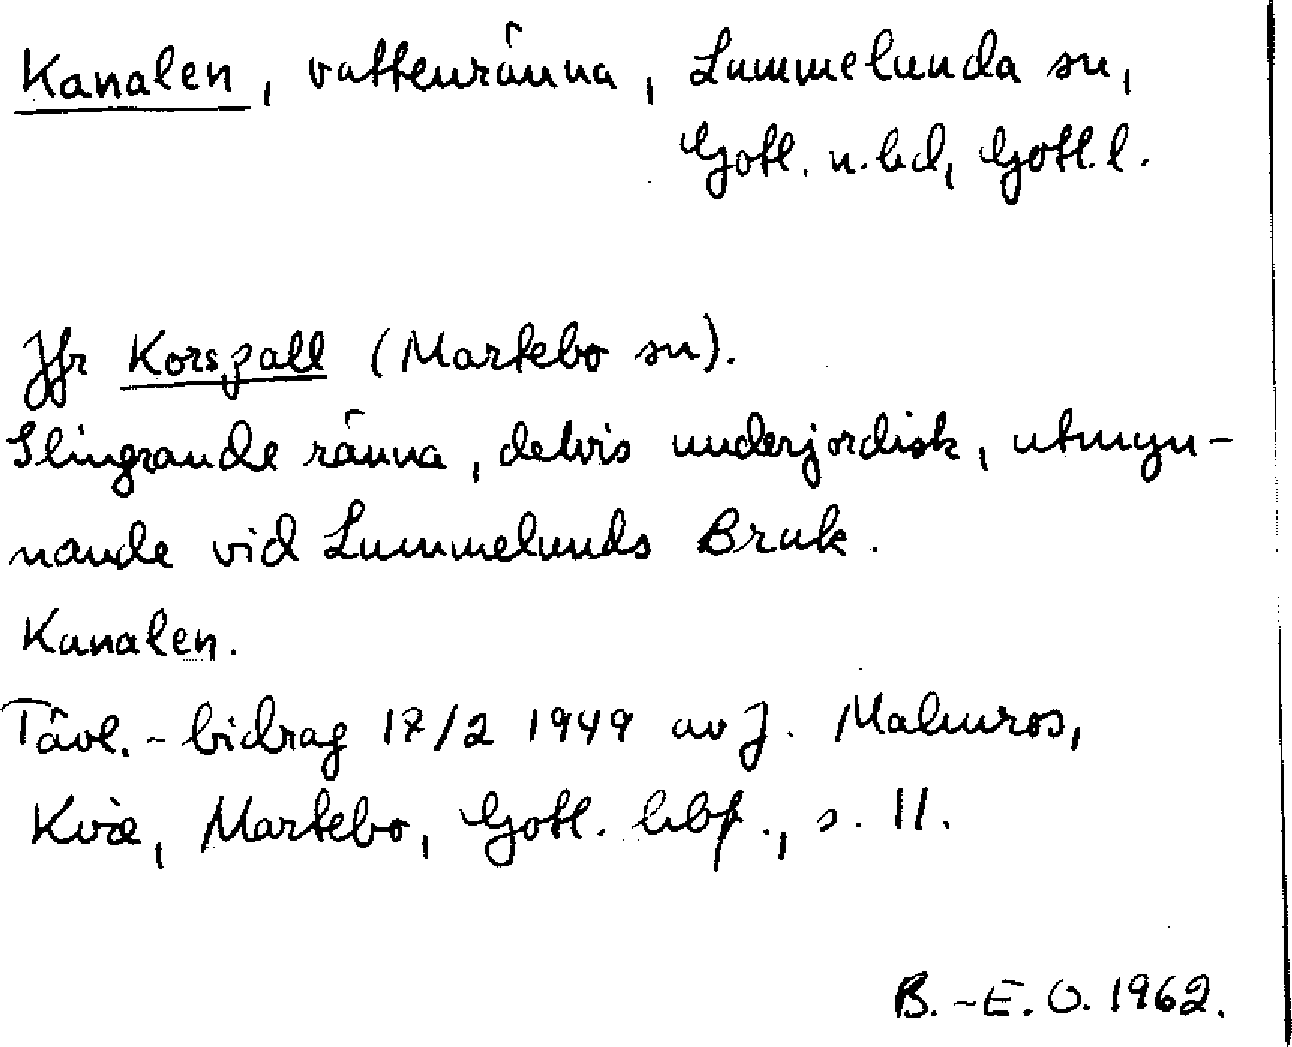 Kanalen, vattenränna, Lummelunda sn,
Gotl. n. bd, Gotl. l.
Jfr Korszall (Martebo sn).
Slingrande ränna, delvis underjordisk, utmyn-
nande vid Lummelunds Bruk.
Kanalen.
Tävl.-bidrag 17/2 1949 av J. Malmros,
Kvie, Martebo, Gotl. hbf., s. 11.
B.-E. O. 1962.